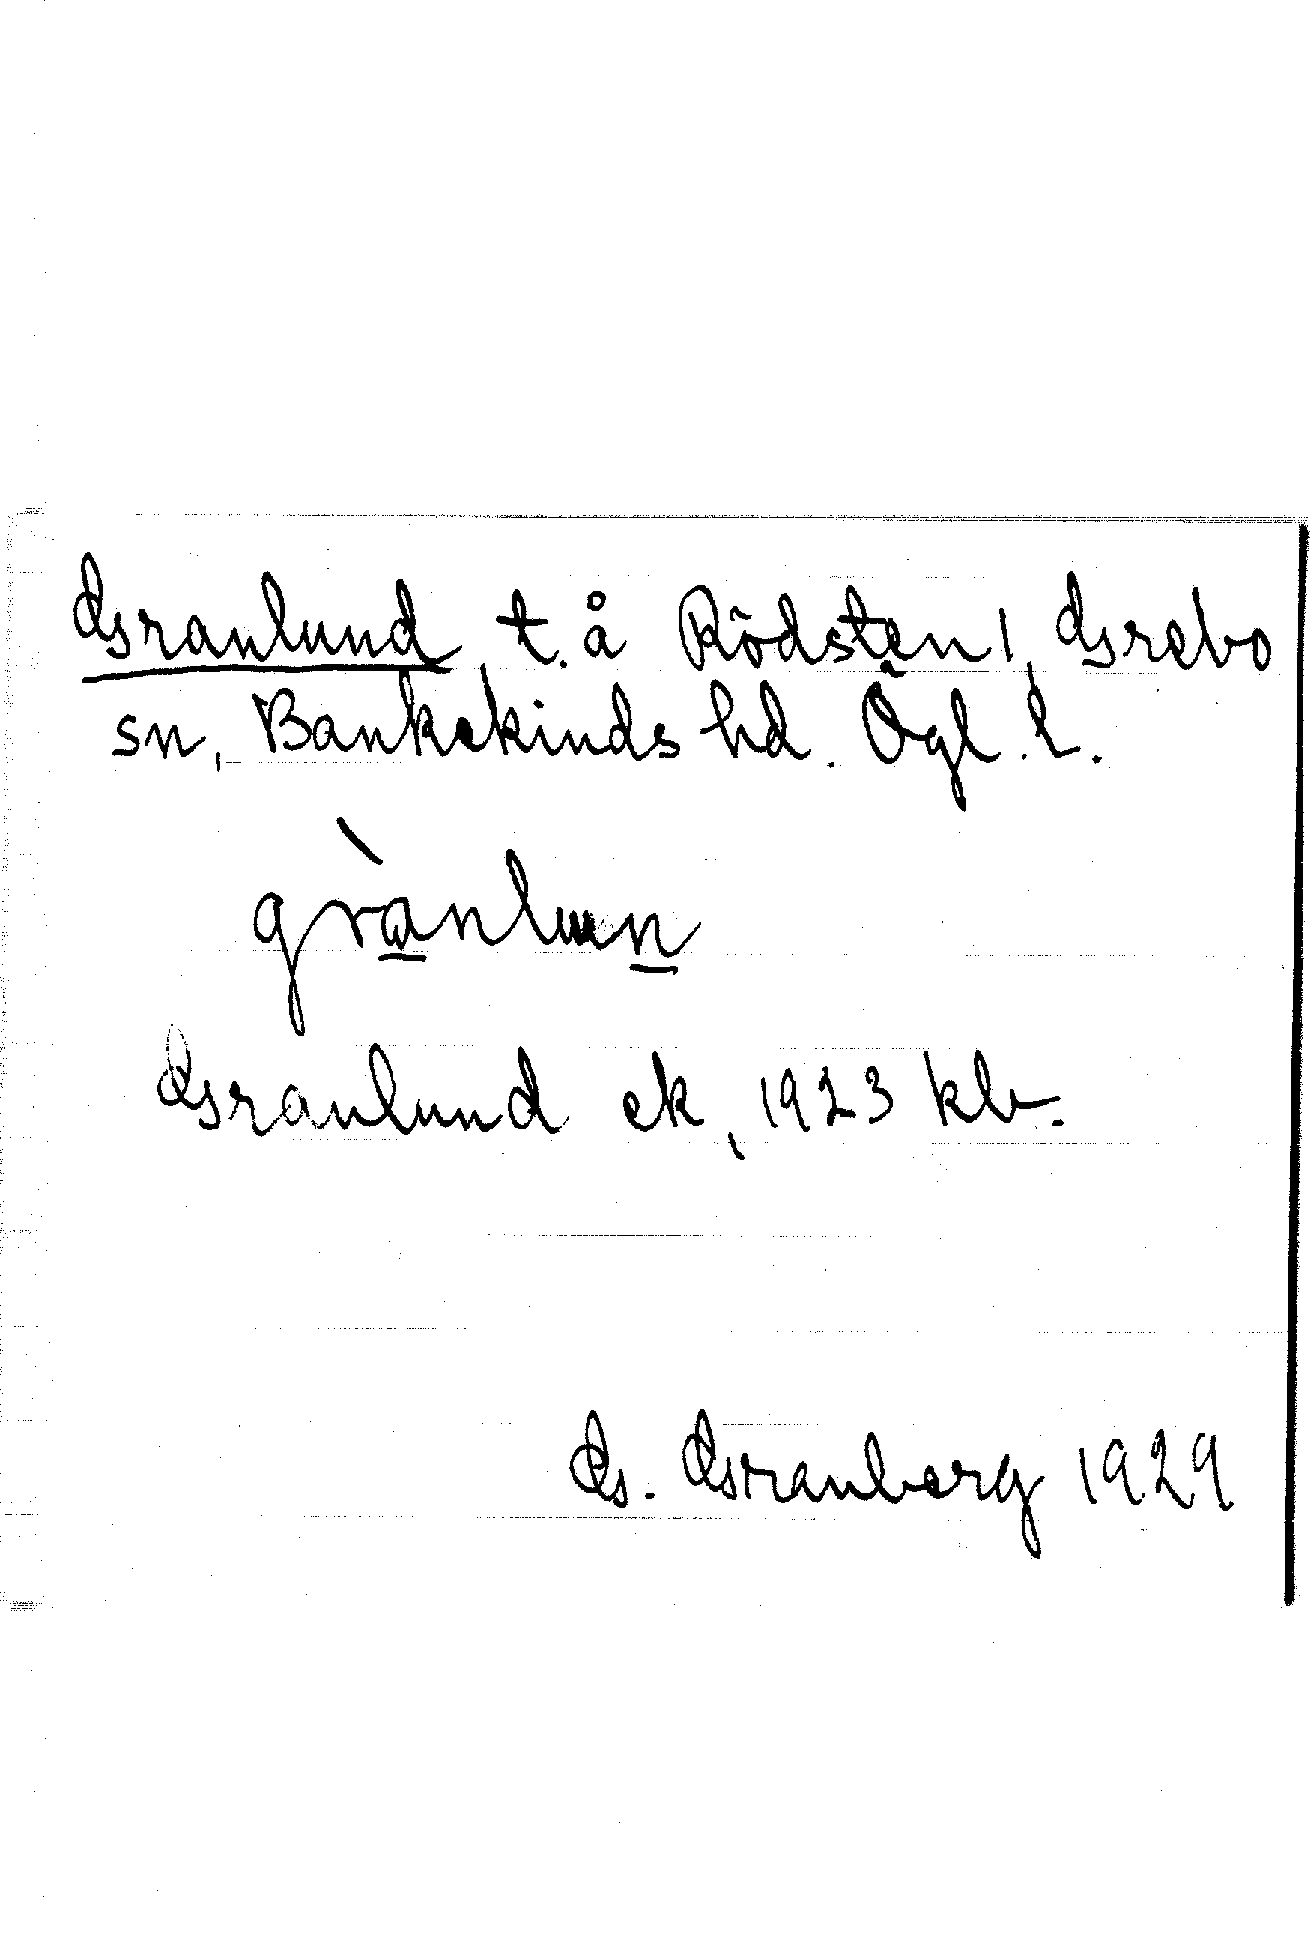 Granlund, t. å Rödsten 1, Grebo
sn, Bankekinds hd. Ögl. l.
grànlun
Granlund ek, 1923 klr.
G. Granberg 1929